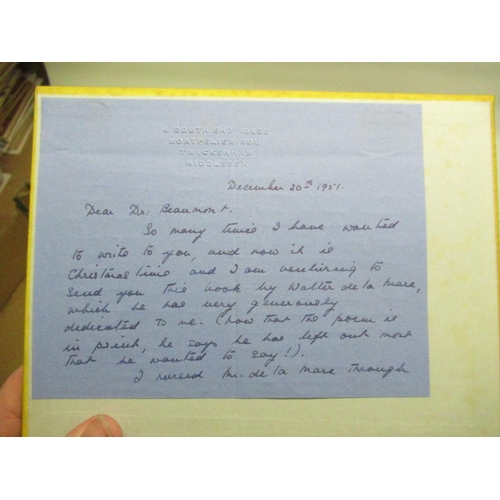 4 SOUTH END HOUSE
MONTPELIER ROW
TWICKENHAM
MIDDLESEX
December 20th 1951.
Dear Dr. Beaumont.
So many times I have wanted
to write to you, and now it is
Christmas time and I am venturing to
send you this book by Walter de la Mare,
which he has very generously
dedicated to me. (now that the poem is
in print, he says he has left out most
that he wanted to say!).
I nursed Mr. de la Mare through